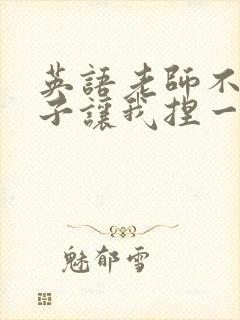 英語老師不
子讓我捏一
魅郁雪